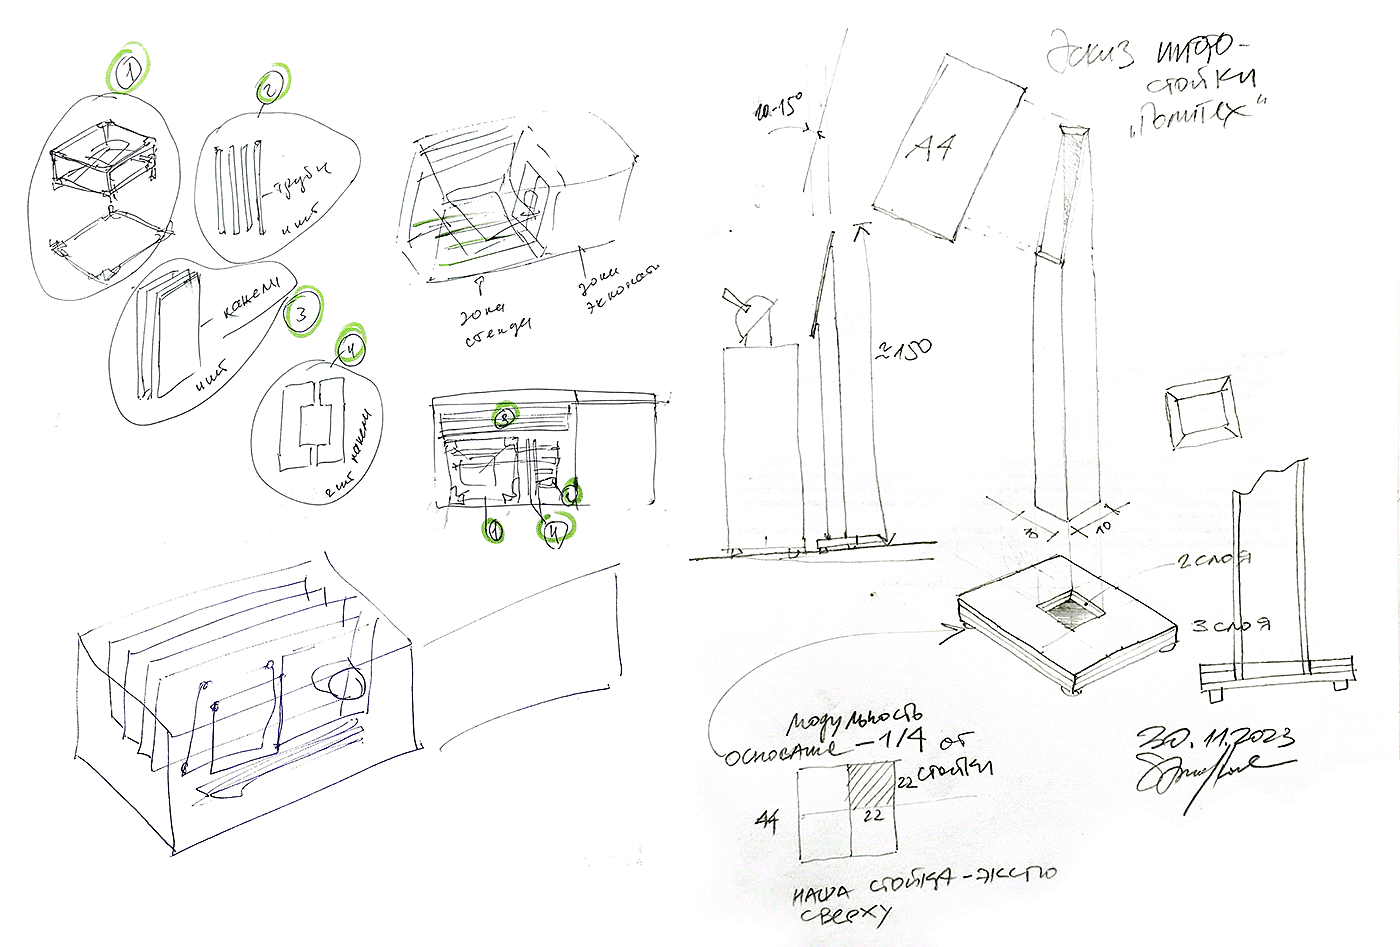 1
2
трубы
4 шт
панели
3
4 шт
4
2 шт панели
зона
стенда
зона
экспоната
3
1
4
2
Эскиз инфо-
стойки
„Политех“
10-15°
А4
≈150
10
2 слоя
3 слоя
модульность
основание – 1/4 от
стойки
22
22
44
наша стойка – экспо
сверху
30.11.2023